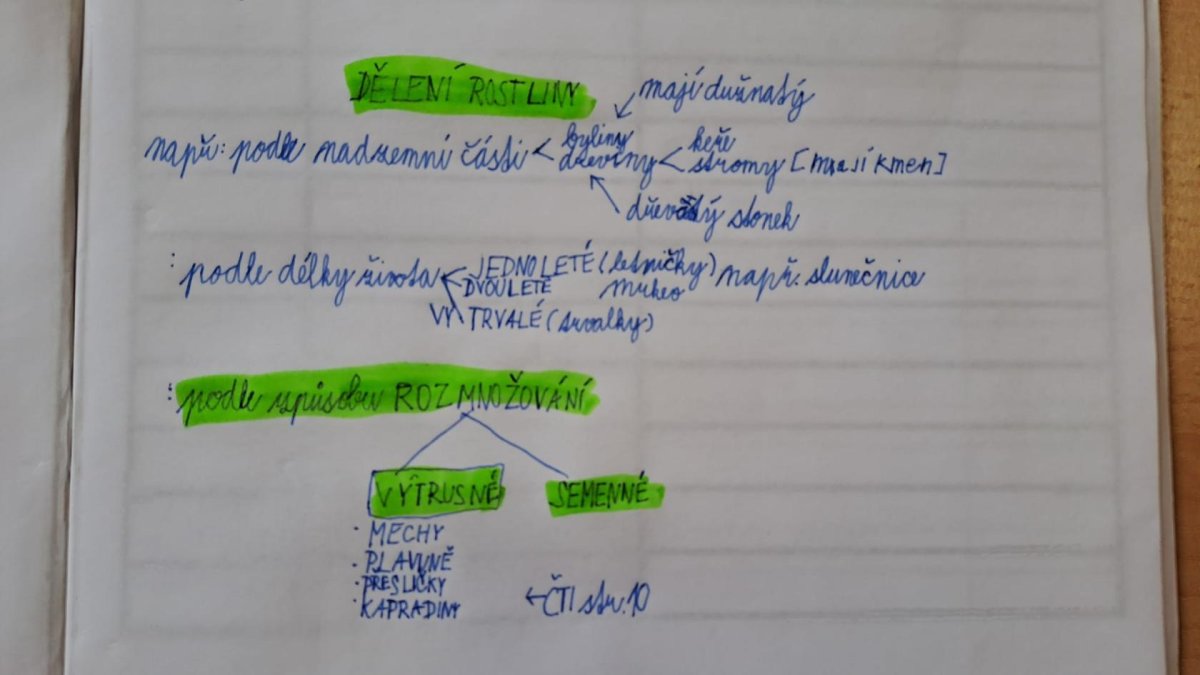 DĚLENÍ ROSTLINY
mají dužnatý
např: podle nadzemní části < byliny
dřeviny < keře
stromy [mají kmen]
dřevatý stonek
: podle délky života JEDNOLETÉ (letničky) např. slunečnice
DVOULETÉ mrkev
VYTRVALÉ (trvalky)
: podle způsobu ROZMNOŽOVÁNÍ
VÝTRUSNÉ SEMENNÉ
· MECHY
· PLAVUNĚ
· PŘESLIČKY
· KAPRADINY
← ČTI str. 10